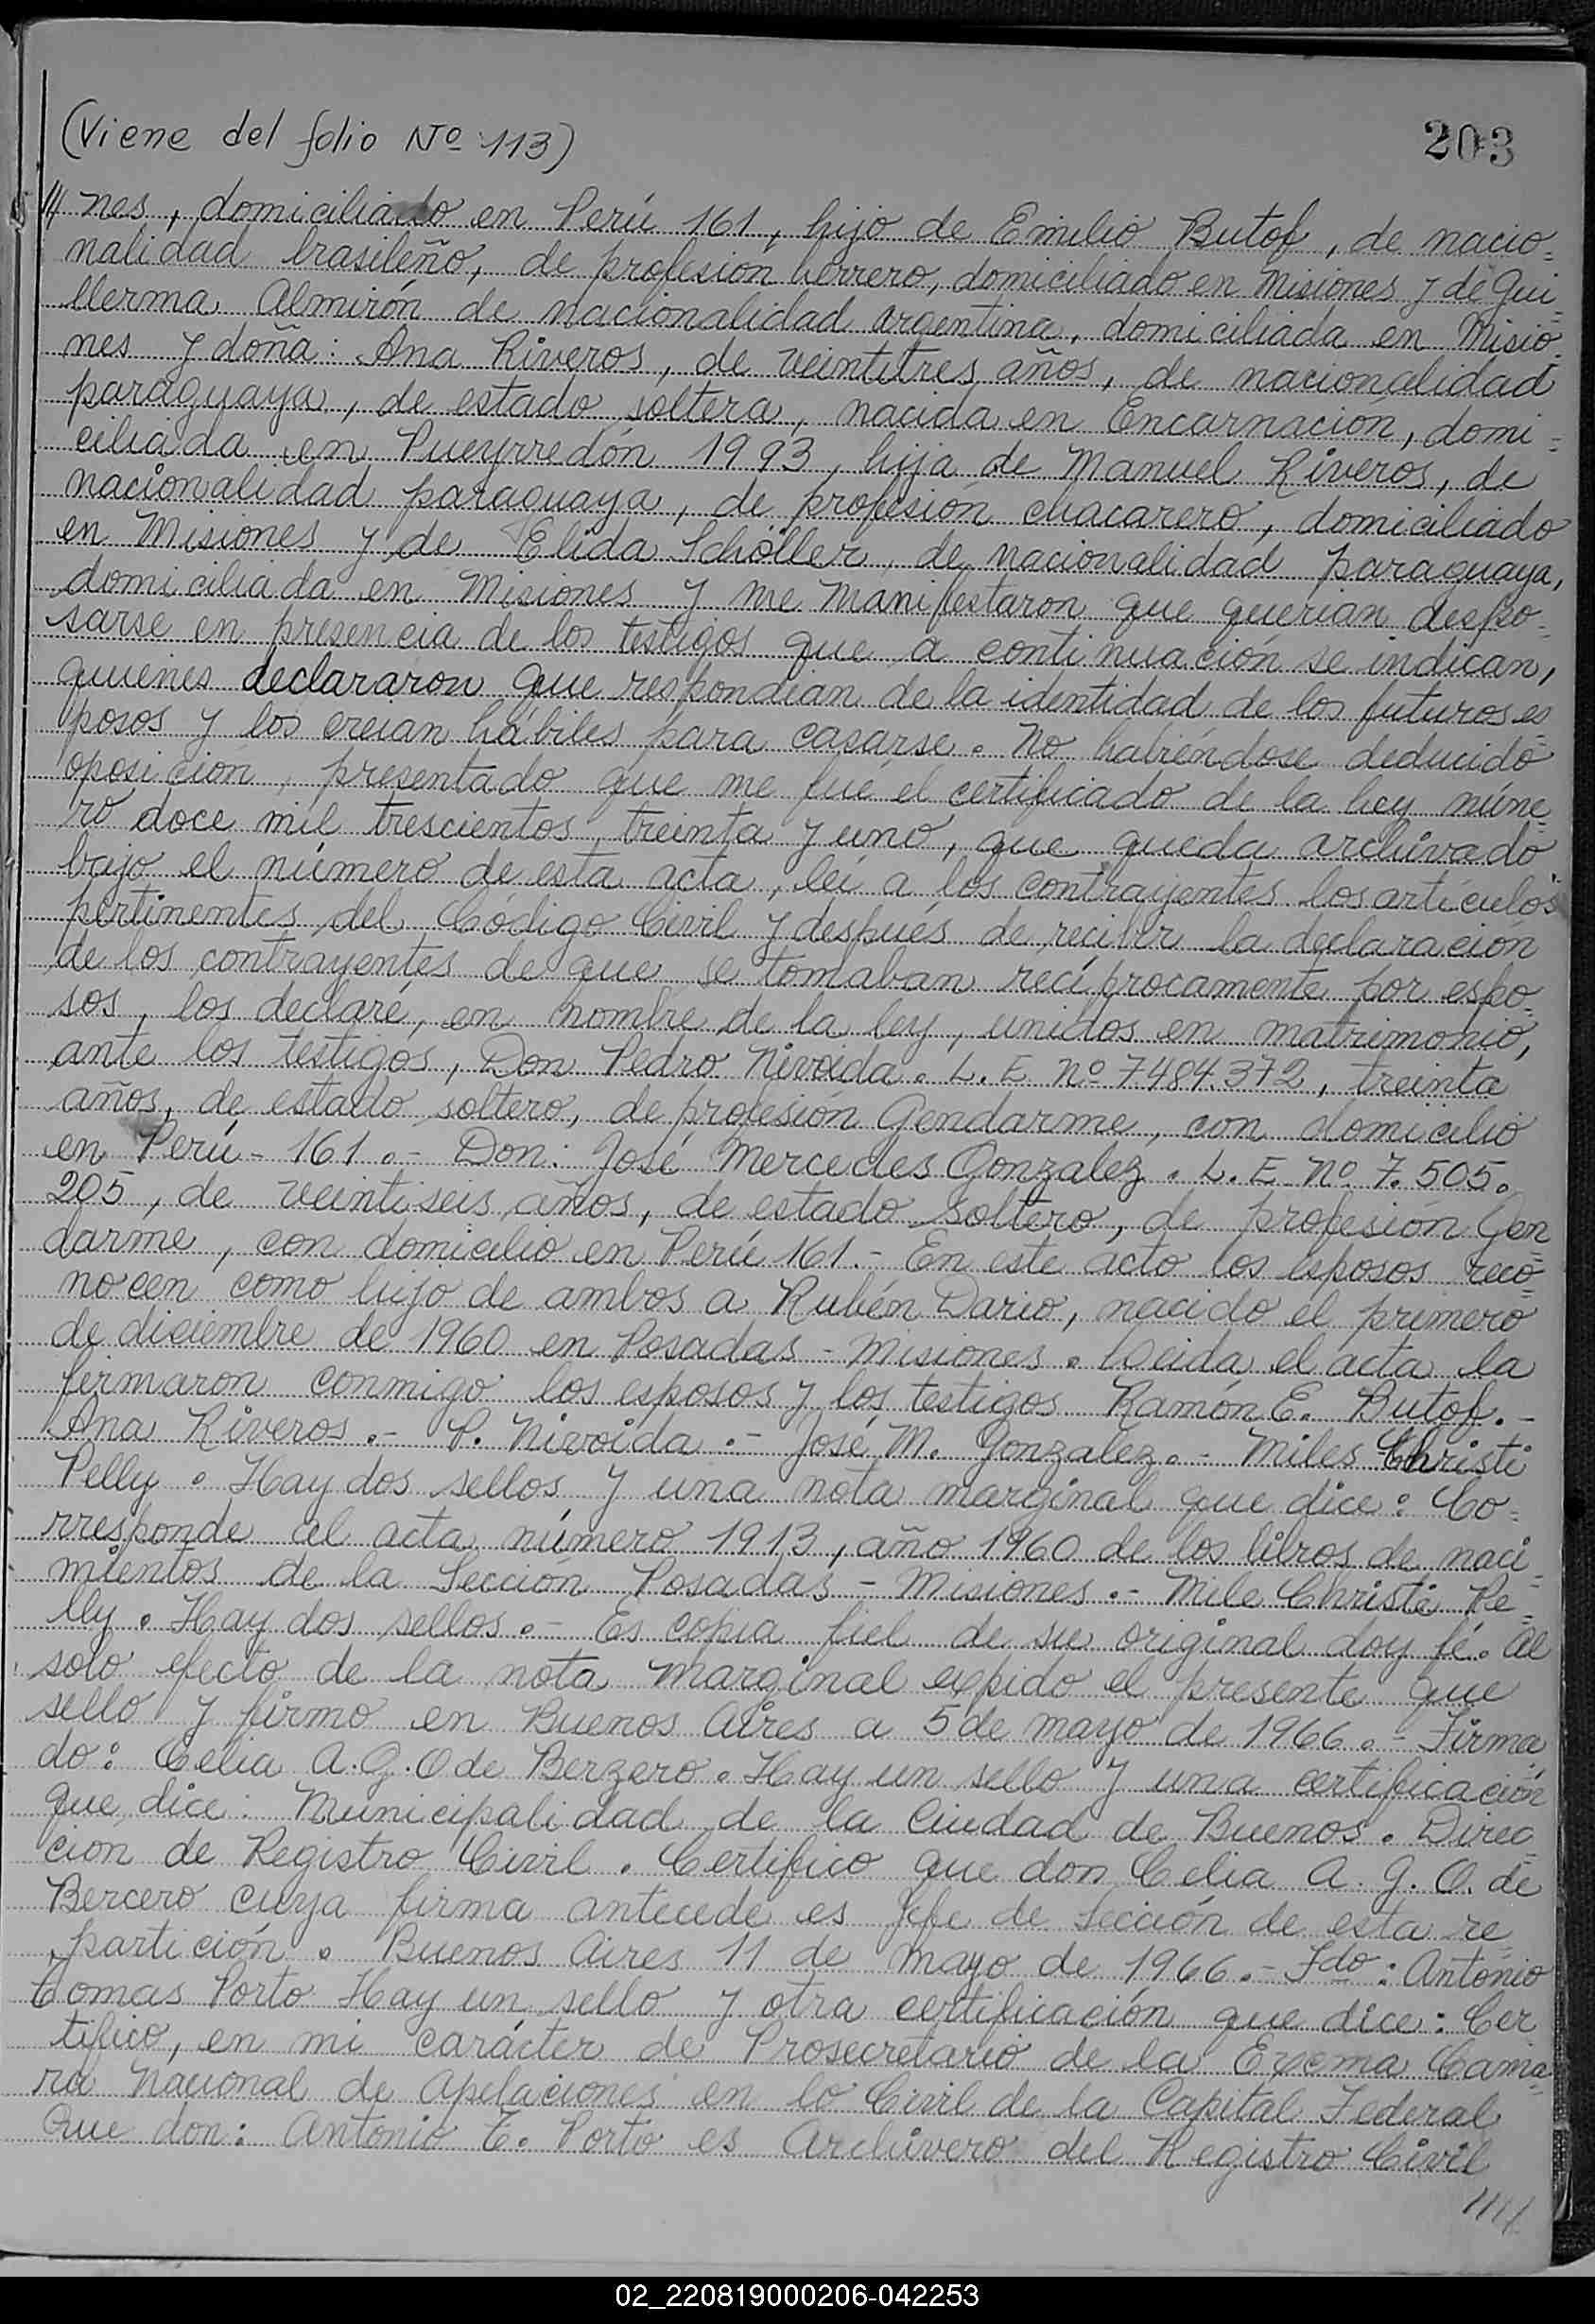 (Viene del folio Nº 113)
203
//// nes, domiciliado en Perú 161, hijo de Emilio Butof, de nacio=
nalidad brasileño, de profesión herrero, domiciliado en Misiones y de Gui=
llerma Almirón de nacionalidad argentina, domiciliada en Misio=
nes y doña: Ana Riveros, de veintitres años, de nacionalidad
paraguaya, de estado soltera, nacida en Encarnación, domi=
ciliada en Pueyrredón 1993, hija de Manuel Riveros, de
nacionalidad paraguaya, de profesión chacarero, domiciliado
en Misiones y de Elida Schöller, de nacionalidad paraguaya,
domiciliada en Misiones y me manifestaron que querian despo=
sarse en presencia de los testigos que a continuación se indican,
quienes declararon que respondian de la identidad de los futuros es=
posos y los creian hábiles para casarse. No habiéndose deducido
oposición, presentado que me fué el certificado de la ley núme=
ro doce mil trescientos treinta y uno, que queda archivado
bajo el número de esta acta, lei a los contrayentes los artículos
pertinentes del Código Civil y después de recibir la declaración
de los contrayentes de que se tomaban recíprocamente por espo=
sos, los declaré, en nombre de la ley, unidos en matrimonio,
ante los testigos, Don Pedro Nivoida. L. E. Nº 7484.372, treinta
años, de estado soltero, de profesión Gendarme, con domicilio
en Perú - 161.- Don: José Mercedes Gonzalez. L. E. Nº 7.505.
205, de veintiseis años, de estado soltero, de profesión Gen=
darme, con domicilio en Perú 161.- En este acto los esposos reco=
nocen como hijo de ambos a Rubén Dario, nacido el primero
de diciembre de 1960 en Posadas - Misiones. Leida el acta la
firmaron conmigo los esposos y los testigos Ramón E. Butof.-
Ana Riveros.- P. Nivoida.- José M. Gonzalez.- Miles Christi
Pelly. Hay dos sellos y una nota marginal que dice: Co=
rresponde al acta número 1913, año 1960 de los libros de naci=
mientos de la Sección Posadas - Misiones.- Mile Christi Pe=
lly. Hay dos sellos.- Es copia fiel de su original doy fé. Al
solo efecto de la nota marginal expido el presente que
sello y firmo en Buenos Aires a 5 de mayo de 1966.- Firma
do: Celia A. G. O de Berzero. Hay un sello y una certificación
que dice: Municipalidad de la Ciudad de Buenos. Direc=
cion de Registro Civil. Certifico que don Celia A. G. O. de
Bercero cuya firma antecede es Jefe de Sección de esta re=
partición. Buenos Aires 11 de mayo de 1966.- Fdo: Antonio
Tomas Porto Hay un sello y otra certificación que dice: Cer
tifico, en mi carácter de Prosecretario de la Excma Cama=
ra Nacional de Apelaciones en lo Civil de la Capital Federal
Que don: Antonio T. Porto es Archivero del Registro Civil
////
02_220819000206-042253